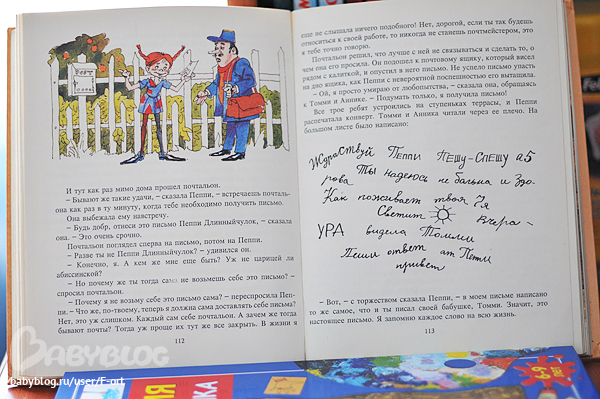 И тут как раз мимо дома прошел почтальон.
– Бывают же такие удачи, – сказала Пеппи, – встречаешь почталь-
она как раз в ту минуту, когда тебе необходимо получить письмо.
Она выбежала ему навстречу.
– Будь добр, отнеси это письмо Пеппи Длинныйчулок, – сказала
она. – Это очень срочно.
Почтальон поглядел сперва на письмо, потом на Пеппи.
– Разве ты не Пеппи Длинныйчулок? – удивился он.
– Конечно, я. А кем же мне еще быть? Уж не царицей ли
абиссинской?
– Но почему же ты тогда сама не возьмешь себе это письмо? –
спросил почтальон.
– Почему я не возьму себе это письмо сама? – переспросила Пеп-
пи. – Что же, по-твоему, теперь я должна сама доставлять себе письма?
Нет, это уж слишком. Каждый сам себе почтальон. А зачем же тогда
бывают почты? Тогда уж проще их тут же все закрыть. В жизни я
112
еще не слышала ничего подобного! Нет, дорогой, если ты так будешь
относиться к своей работе, то никогда не станешь почтмейстером, это
я тебе точно говорю.
Почтальон решил, что лучше с ней не связываться и сделать то, о
чем она его просила. Он подошел к почтовому ящику, который висел
рядом с калиткой, и опустил в него письмо. Не успело письмо упасть
на дно ящика, как Пеппи с невероятной поспешностью его вытащила.
– Ой, я просто умираю от любопытства, – сказала она, обращаясь
к Томми и Аннике. – Подумать только, я получила письмо!
Все трое ребят устроились на ступеньках террасы, и Пеппи
распечатала конверт. Томми и Анника читали через ее плечо. На
большом листе было написано:
Ждраствуй Пеппи Пешу-спешу а5
рова Ты надеюсь не бальна и Здо-
Как поживает твоя 7я
Светит Вчера-
УРА видела Томми
Пеши ответ ат Пепи
привет
– Вот, – с торжеством сказала Пеппи, – в моем письме написано
то же самое, что и ты писал своей бабушке, Томми. Значит, это
настоящее письмо. Я запомню каждое слово на всю жизнь.
113
BABYBLOG
babyblog.ru/user/F-ort